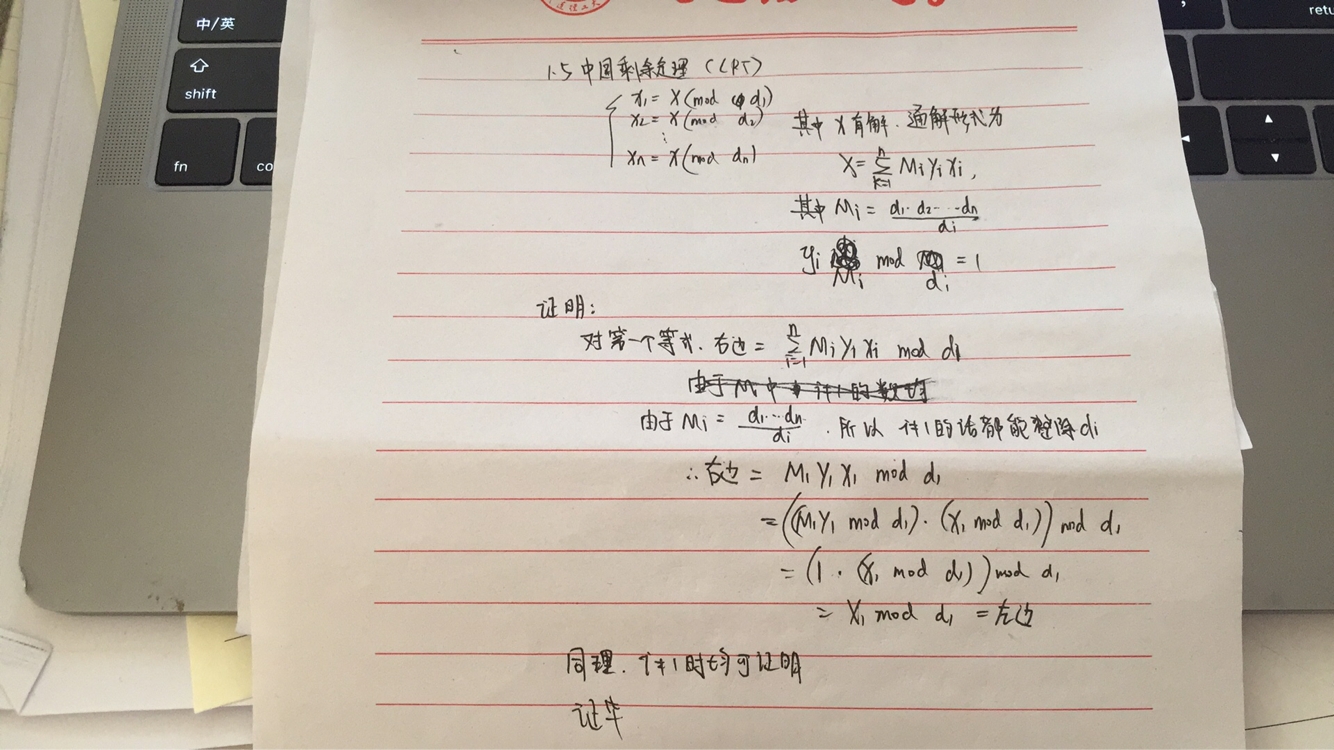 中/英
shift
fn
co
retu
1.5 中国剩余定理 (CRT)
x₁ = X (mod d₁)
x₂ = X (mod d₂)
⋮
xₙ = X (mod dₙ)
其中 X 有解. 通解形式为
X = ∑ᵢ₌₁ⁿ Mᵢ yᵢ xᵢ,
其中 Mᵢ = d₁·d₂…dₙ / dᵢ
yᵢ Mᵢ mod dᵢ = 1
证明:
对第一个等式. 右边 = ∑ᵢ₌₁ⁿ Mᵢ yᵢ xᵢ mod d₁
由于 Mᵢ = d₁…dₙ / dᵢ . 所以 i≠1的话都能整除 d₁
∴右边 = M₁ y₁ x₁ mod d₁
= ((M₁ y₁ mod d₁)·(x₁ mod d₁)) mod d₁
= (1·(x₁ mod d₁)) mod d₁
= x₁ mod d₁ = 左边
同理. i≠1时均可证明
证毕